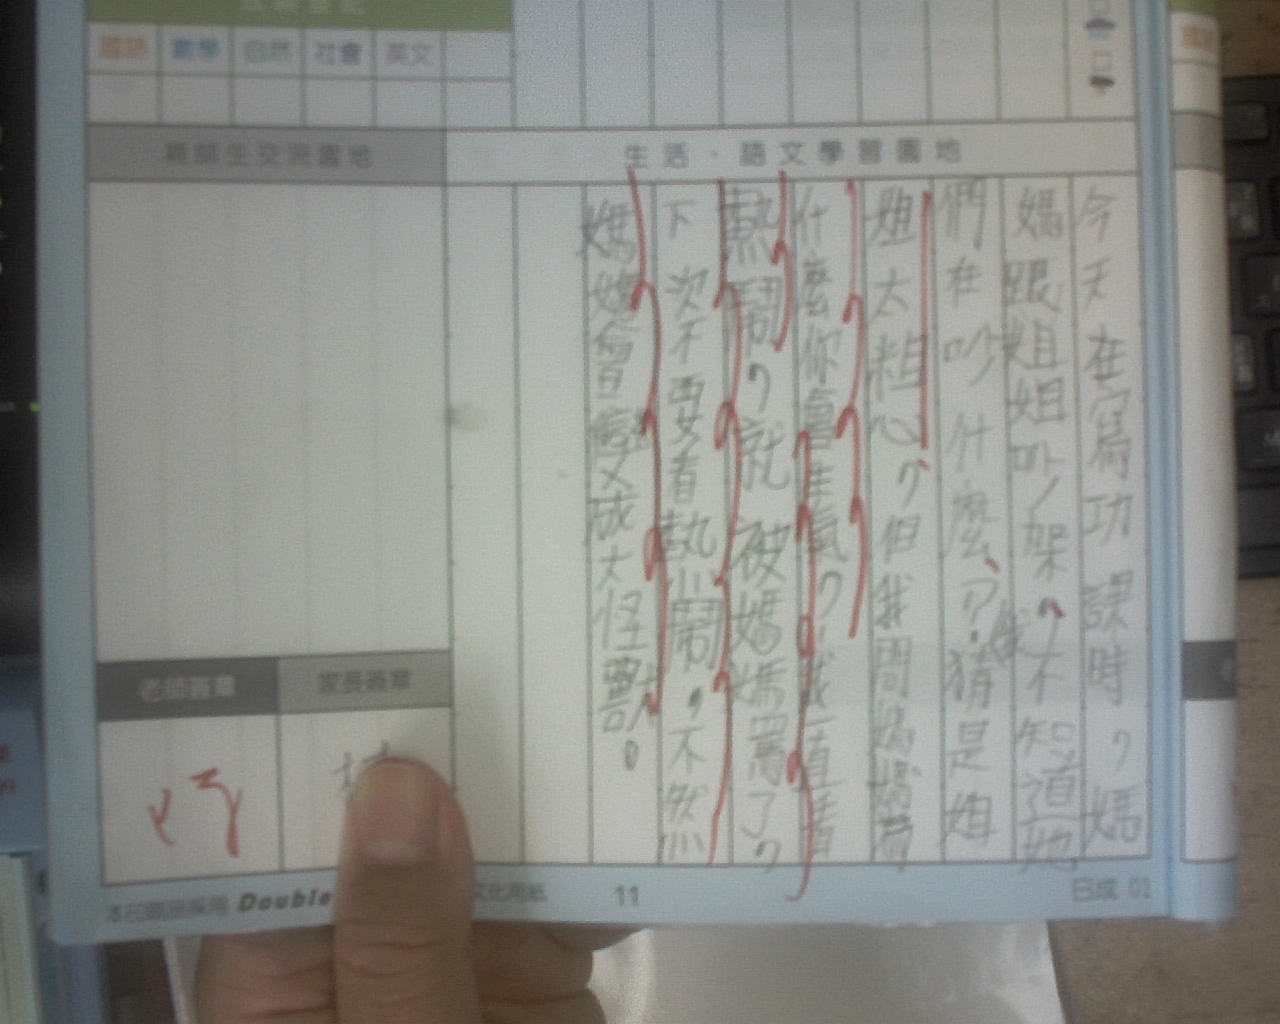 國語 數學 自然 社會 英文
親師生交流園地
生活、語文學習園地
今天在寫功課時,媽
媽跟姐姐吵架,我不知道她
們在吵什麼?猜是姐
姐太粗心,但我問媽媽為
什麼你會生氣,我一直看
熱鬧,就被媽媽罵了,
下次不要看熱鬧,不然
媽媽會變成大怪獸。
老師簽章
家長簽章
Double
文化用紙
11
日成 01